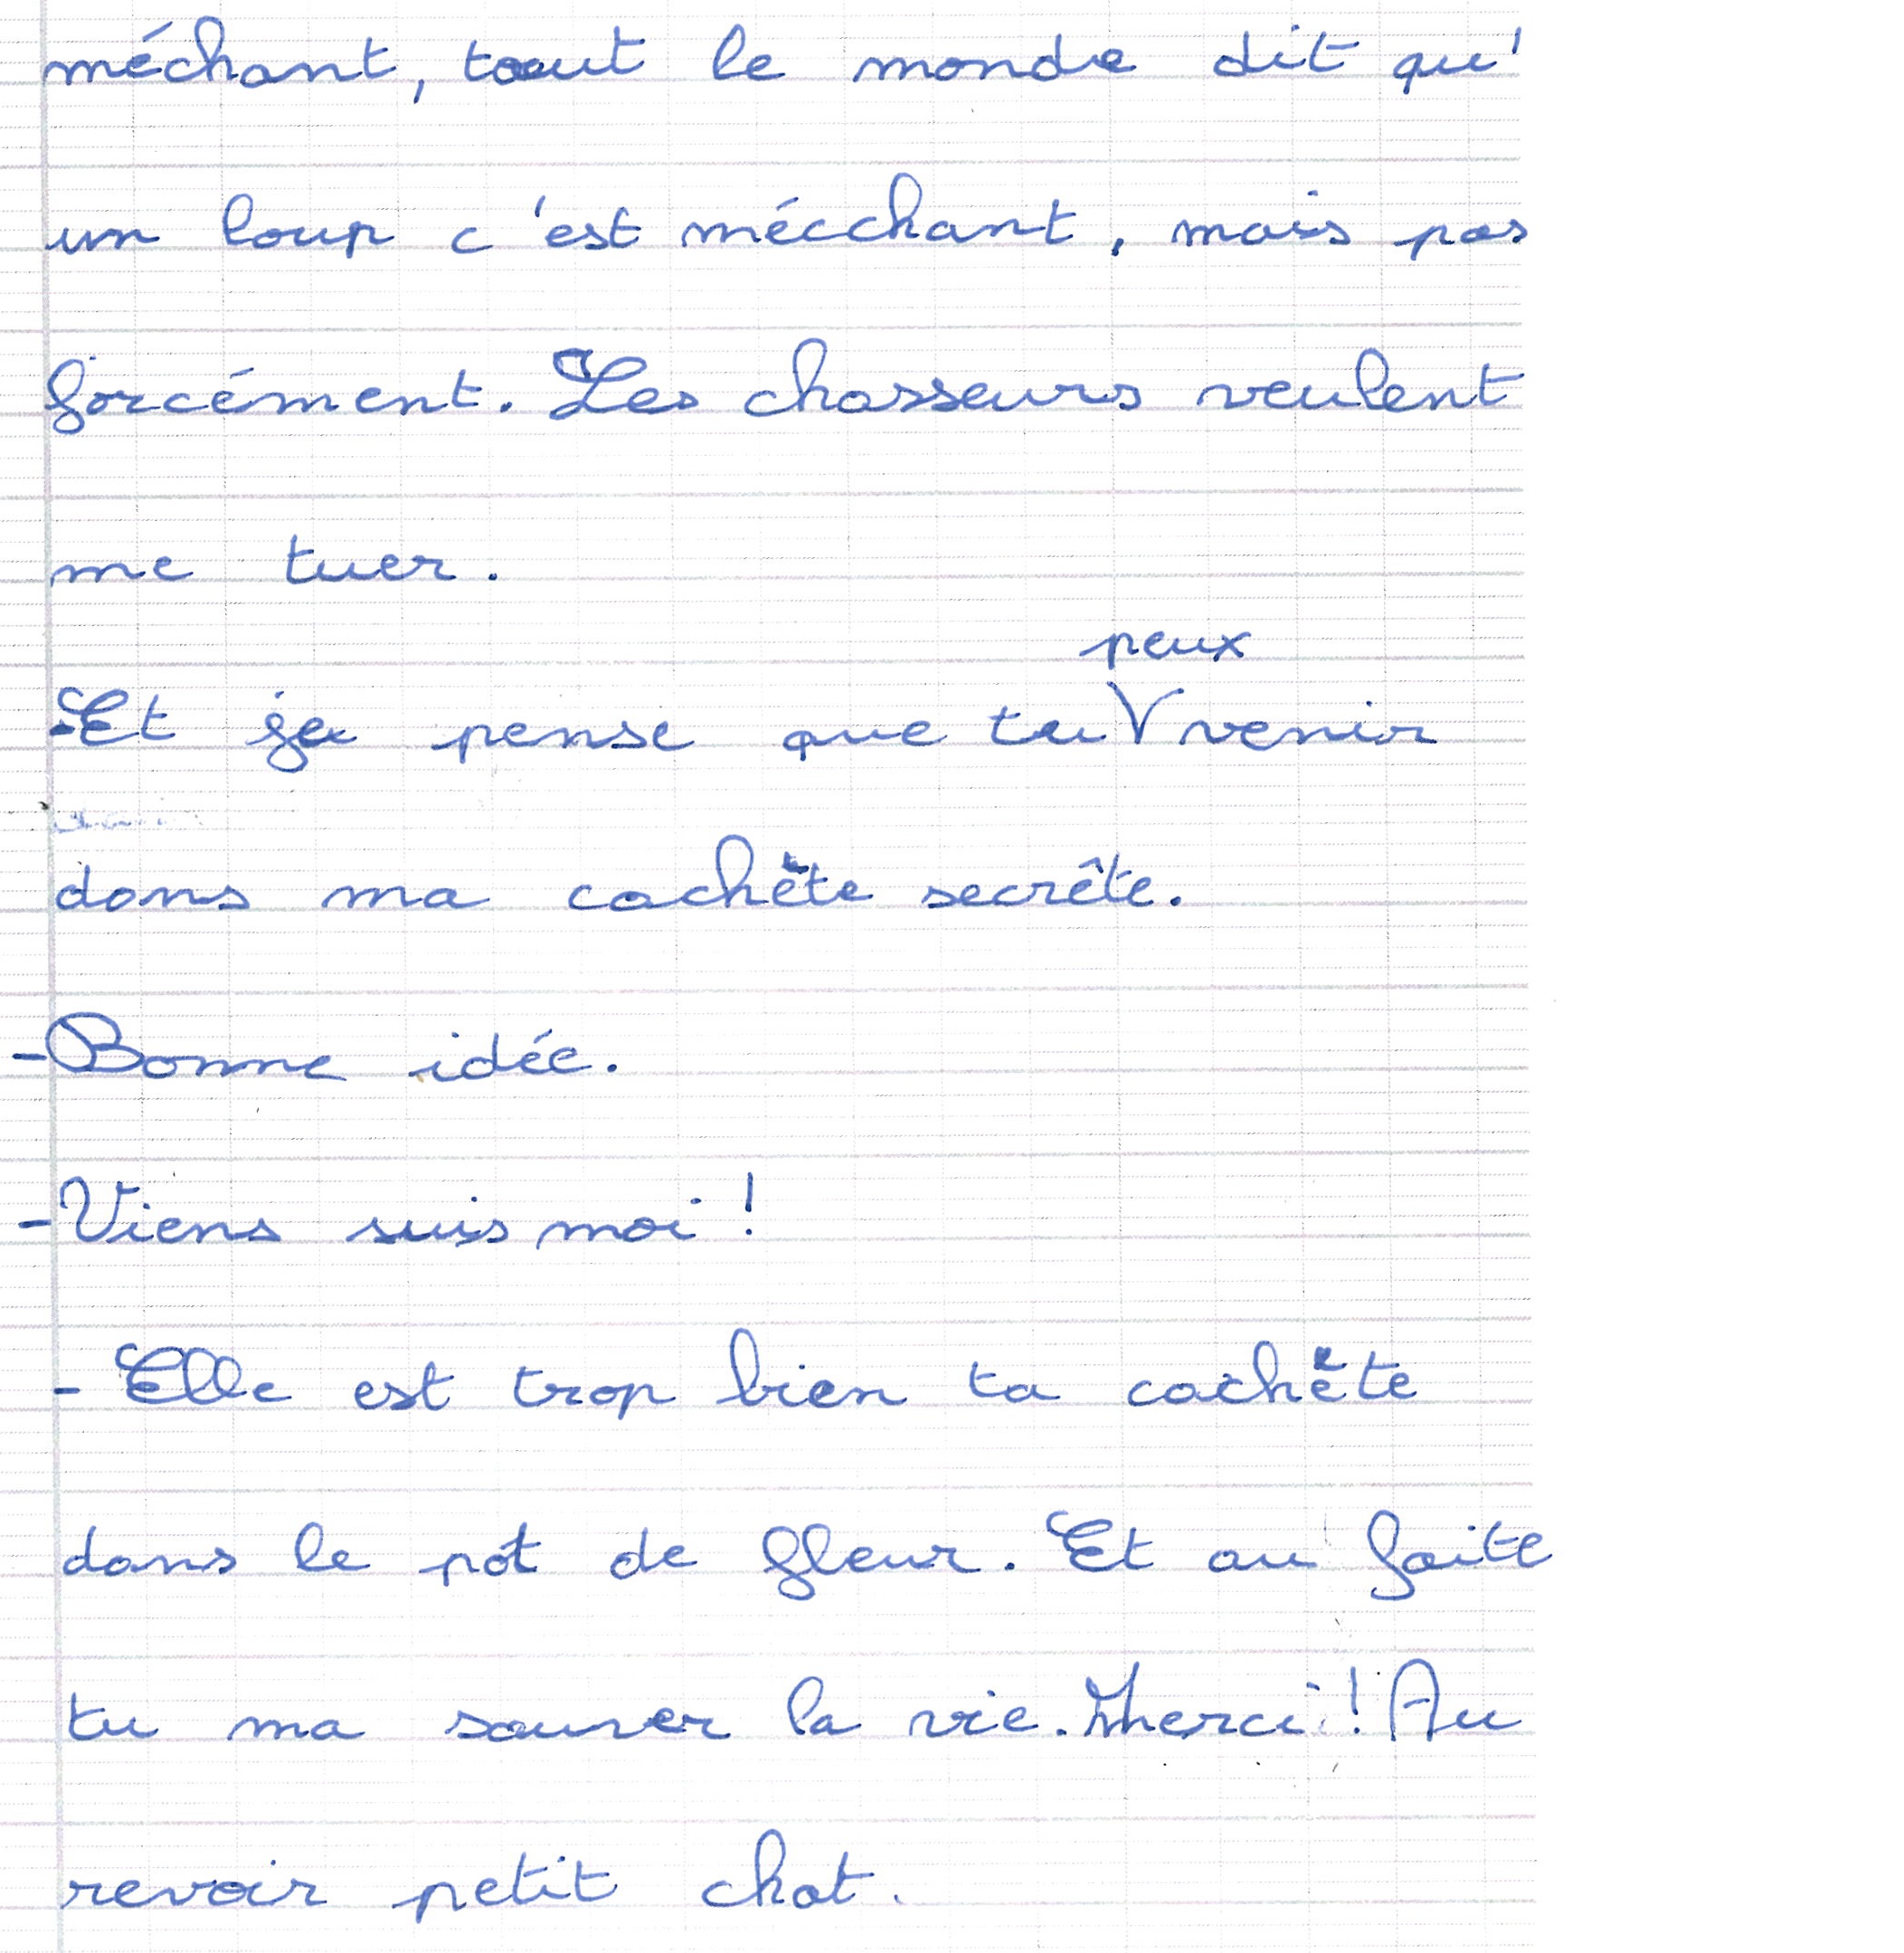 méchant, tout le monde dit qu'
un loup c'est mécchant, mais pas
forcément. Les chasseurs veulent
me tuer.
peux
-Et je pense que tu V venir
dans ma cachête secrête.
-Bonne idée.
-Viens suis moi !
- Elle est trop bien ta cachête
dans le pôt de fleur. Et au faite
tu ma sauver la vie. Merci ! Au
revoir petit chat.